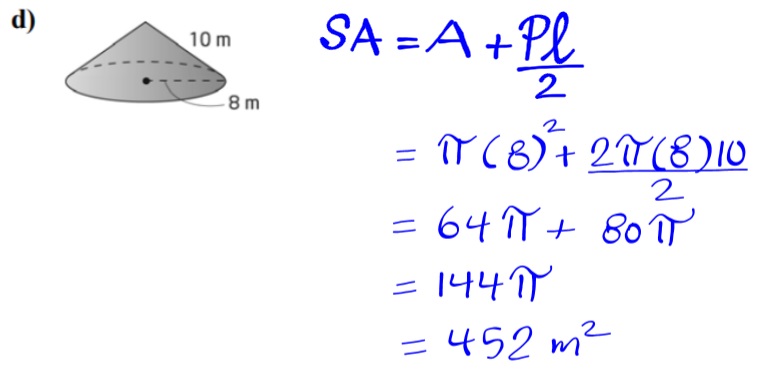 d)
10 m
8 m
SA = A + Pl/2
= π(8)² + 2π(8)10/2
= 64π + 80π
= 144π
= 452 m²